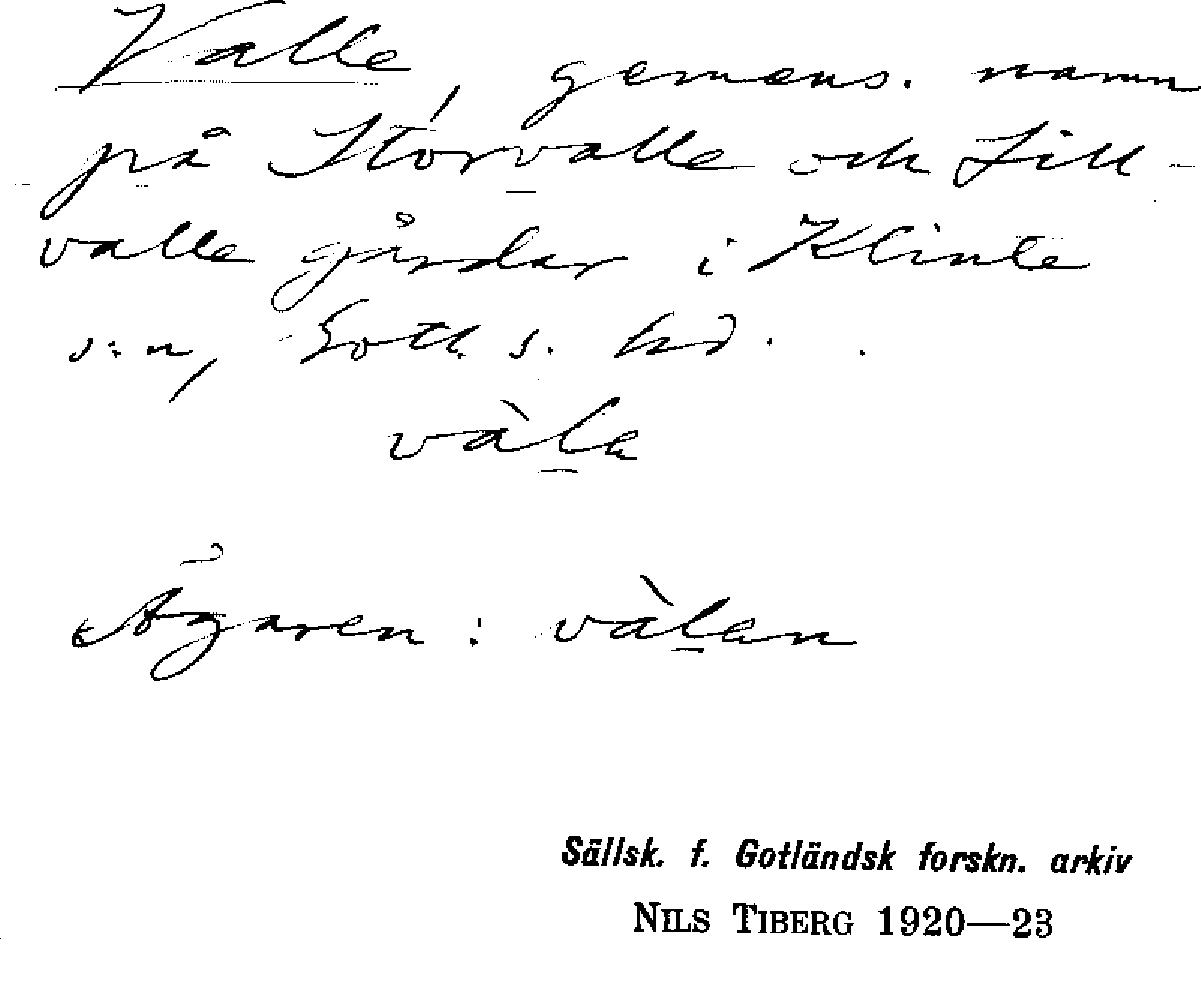 Valle, gemens. namn
på Storvalle och Lill-
valle gårdar i Klinte
s:n, Gotl. s. hd.
vàla
Ägaren : vàlan
Sällsk. f. Gotländsk forskn. arkiv
NILS TIBERG 1920—23